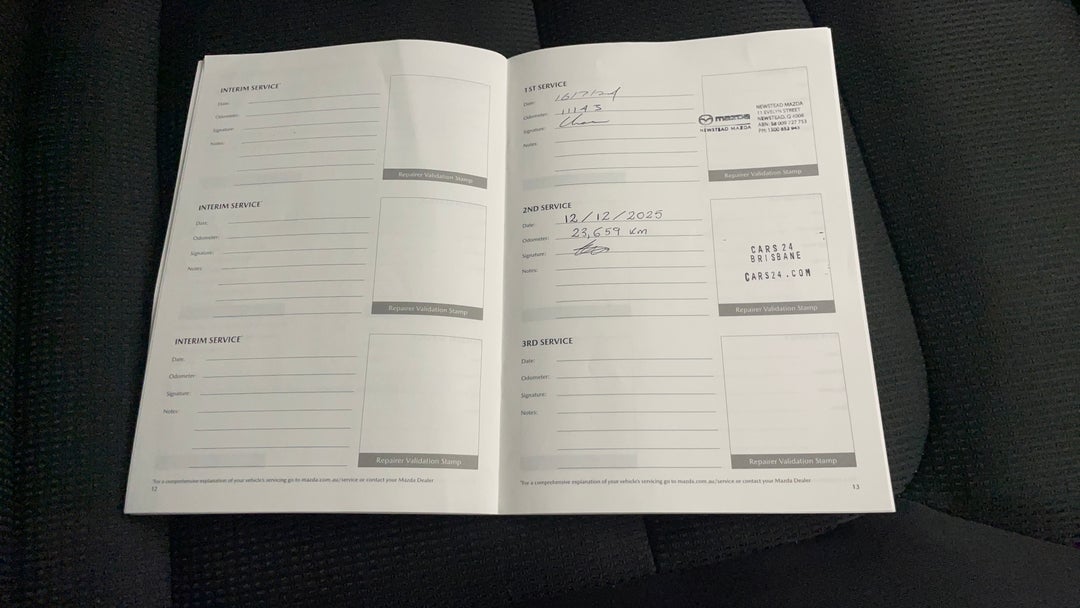 INTERIM SERVICE*
Date:
Odometer:
Signature:
Notes:
Repairer Validation Stamp
INTERIM SERVICE*
Date:
Odometer:
Signature:
Notes:
Repairer Validation Stamp
INTERIM SERVICE*
Date:
Odometer:
Signature:
Notes:
Repairer Validation Stamp
*For a comprehensive explanation of your vehicle's servicing go to mazda.com.au/service or contact your Mazda Dealer
12
1ST SERVICE
Date:
Odometer: 11143
Signature:
Notes:
mazda
NEWSTEAD MAZDA
NEWSTEAD MAZDA
11 EVELYN STREET
NEWSTEAD, Q 4006
Repairer Validation Stamp
2ND SERVICE
Date: 12/12/2025
Odometer: 23,659 km
Signature:
Notes:
CARS24
BRISBANE
CARS24.COM
Repairer Validation Stamp
3RD SERVICE
Date:
Odometer:
Signature:
Notes:
Repairer Validation Stamp
*For a comprehensive explanation of your vehicle's servicing go to mazda.com.au/service or contact your Mazda Dealer
13